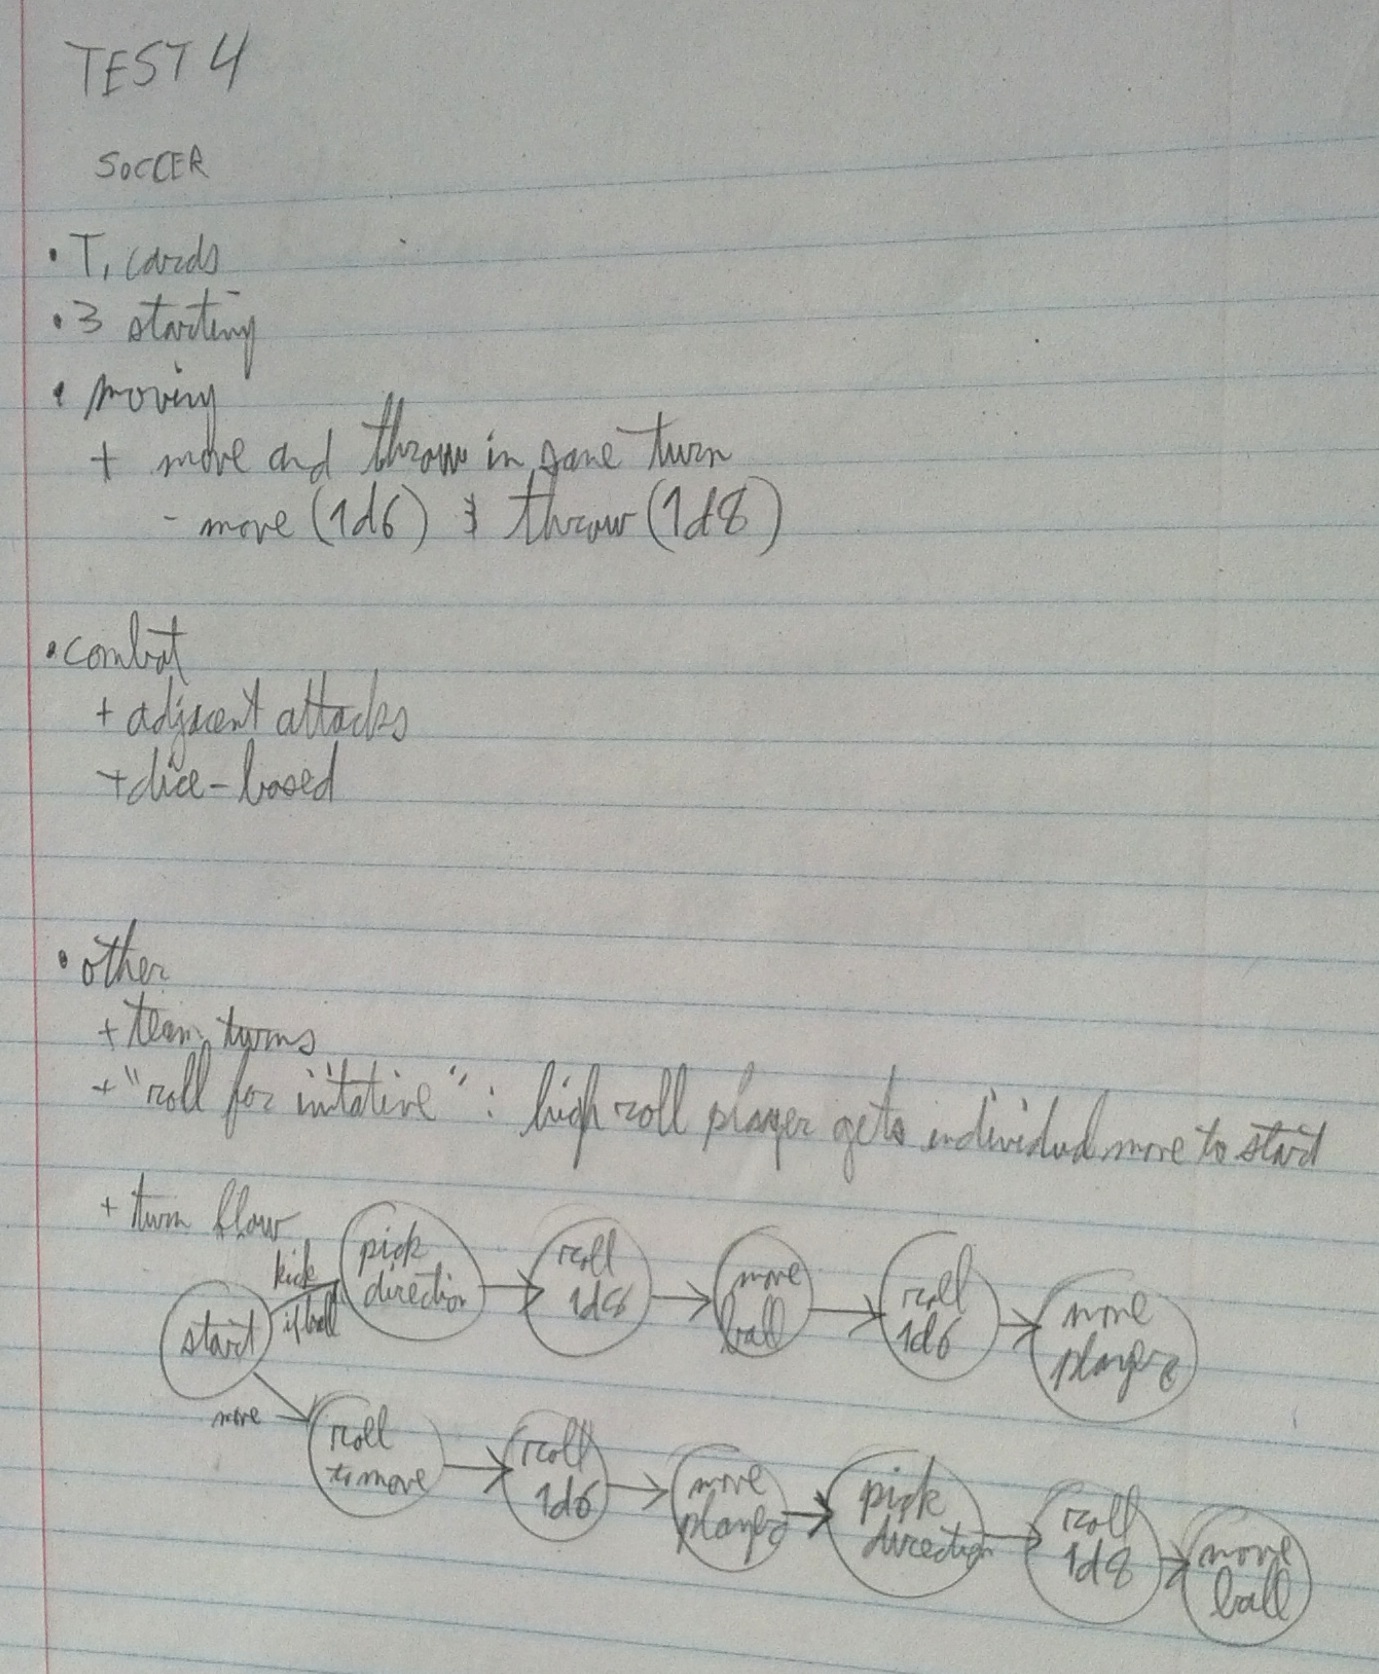 TEST 4
SOCCER
• T, cards
• 3 starting
• moving
+ move and throw in same turn
- move (1d6) & throw (1d8)
• combat
+ adjacent attacks
+ dice-based
• other
+ team turns
+ "roll for initative" : high roll player gets individual move to start
+ turn flow
start
kick
if ball
pick
direction
roll
1d8
move
ball
roll
1d6
move
player
move
roll
to move
roll
1d6
move
player
pick
direction
roll
1d8
move
ball